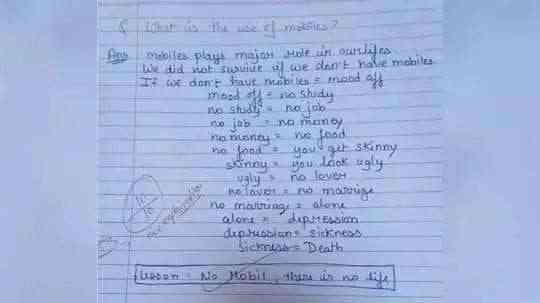 Q What is the use of mobiles?
Ans mobiles plays major role in our lifes.
We did not survive if we don't have mobiles
If we don't have mobiles = mood off
mood off = no study
no study = no job
no job = no money
no money = no food
no food = you get skinny
skinny = you look ugly
ugly = no lover
no lover = no marrige
no marriage = alone
alone = depression
depression = sickness
sickness = Death
10
10
Lesson : No Mobil, there is no life